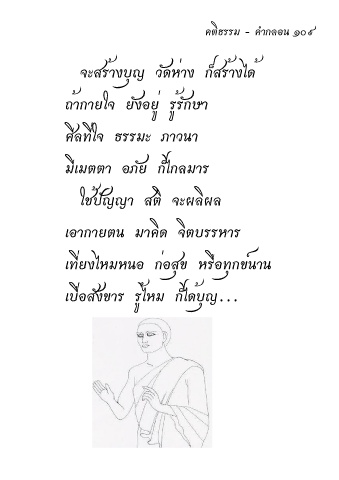 คติธรรม - คำกลอน ๑๐๙
จะสร้างบุญ วัดห่าง ก็สร้างได้
ถ้ากายใจ ยังอยู่ รู้รักษา
ศีลที่ใจ ธรรมะ ภาวนา
มีเมตตา อภัย ก็ไกลมาร
ใช้ปัญญา สติ จะผลิผล
เอากายตน มาคิด จิตบรรหาร
เที่ยงไหมหนอ ก่อสุข หรือทุกข์นาน
เบื่อสังขาร รู้ไหม ก็ได้บุญ...